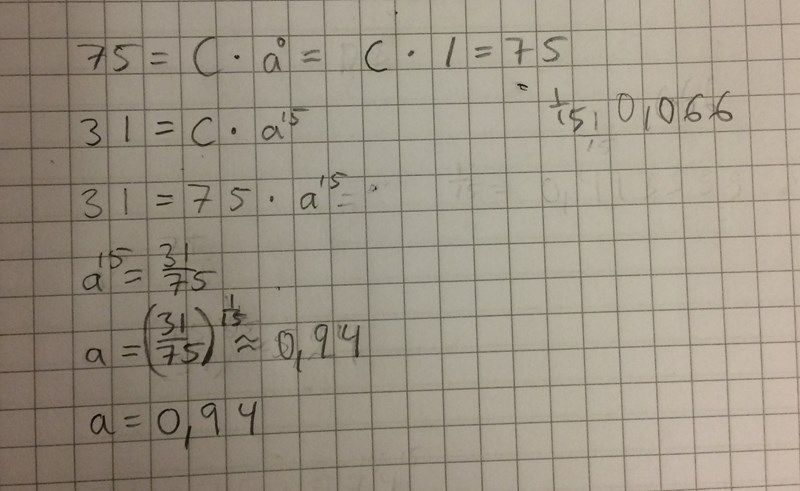 75 = C · a⁰ = C · 1 = 75
1/15, 0,066
31 = C · a¹⁵
31 = 75 · a¹⁵ =
a¹⁵ = 31/75
a = (31/75)^(1/15) ≈ 0,94
a = 0,94